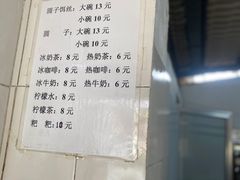 圆子饵丝：大碗 13 元
小碗 10 元
圆 子：大碗 13 元
小碗 10 元
冰奶茶：8 元 热奶茶：6 元
冰咖啡：8 元 热咖啡：6 元
冰牛奶：8 元 热牛奶：6 元
柠檬水：8 元
柠檬茶：8 元
粑 粑：10 元